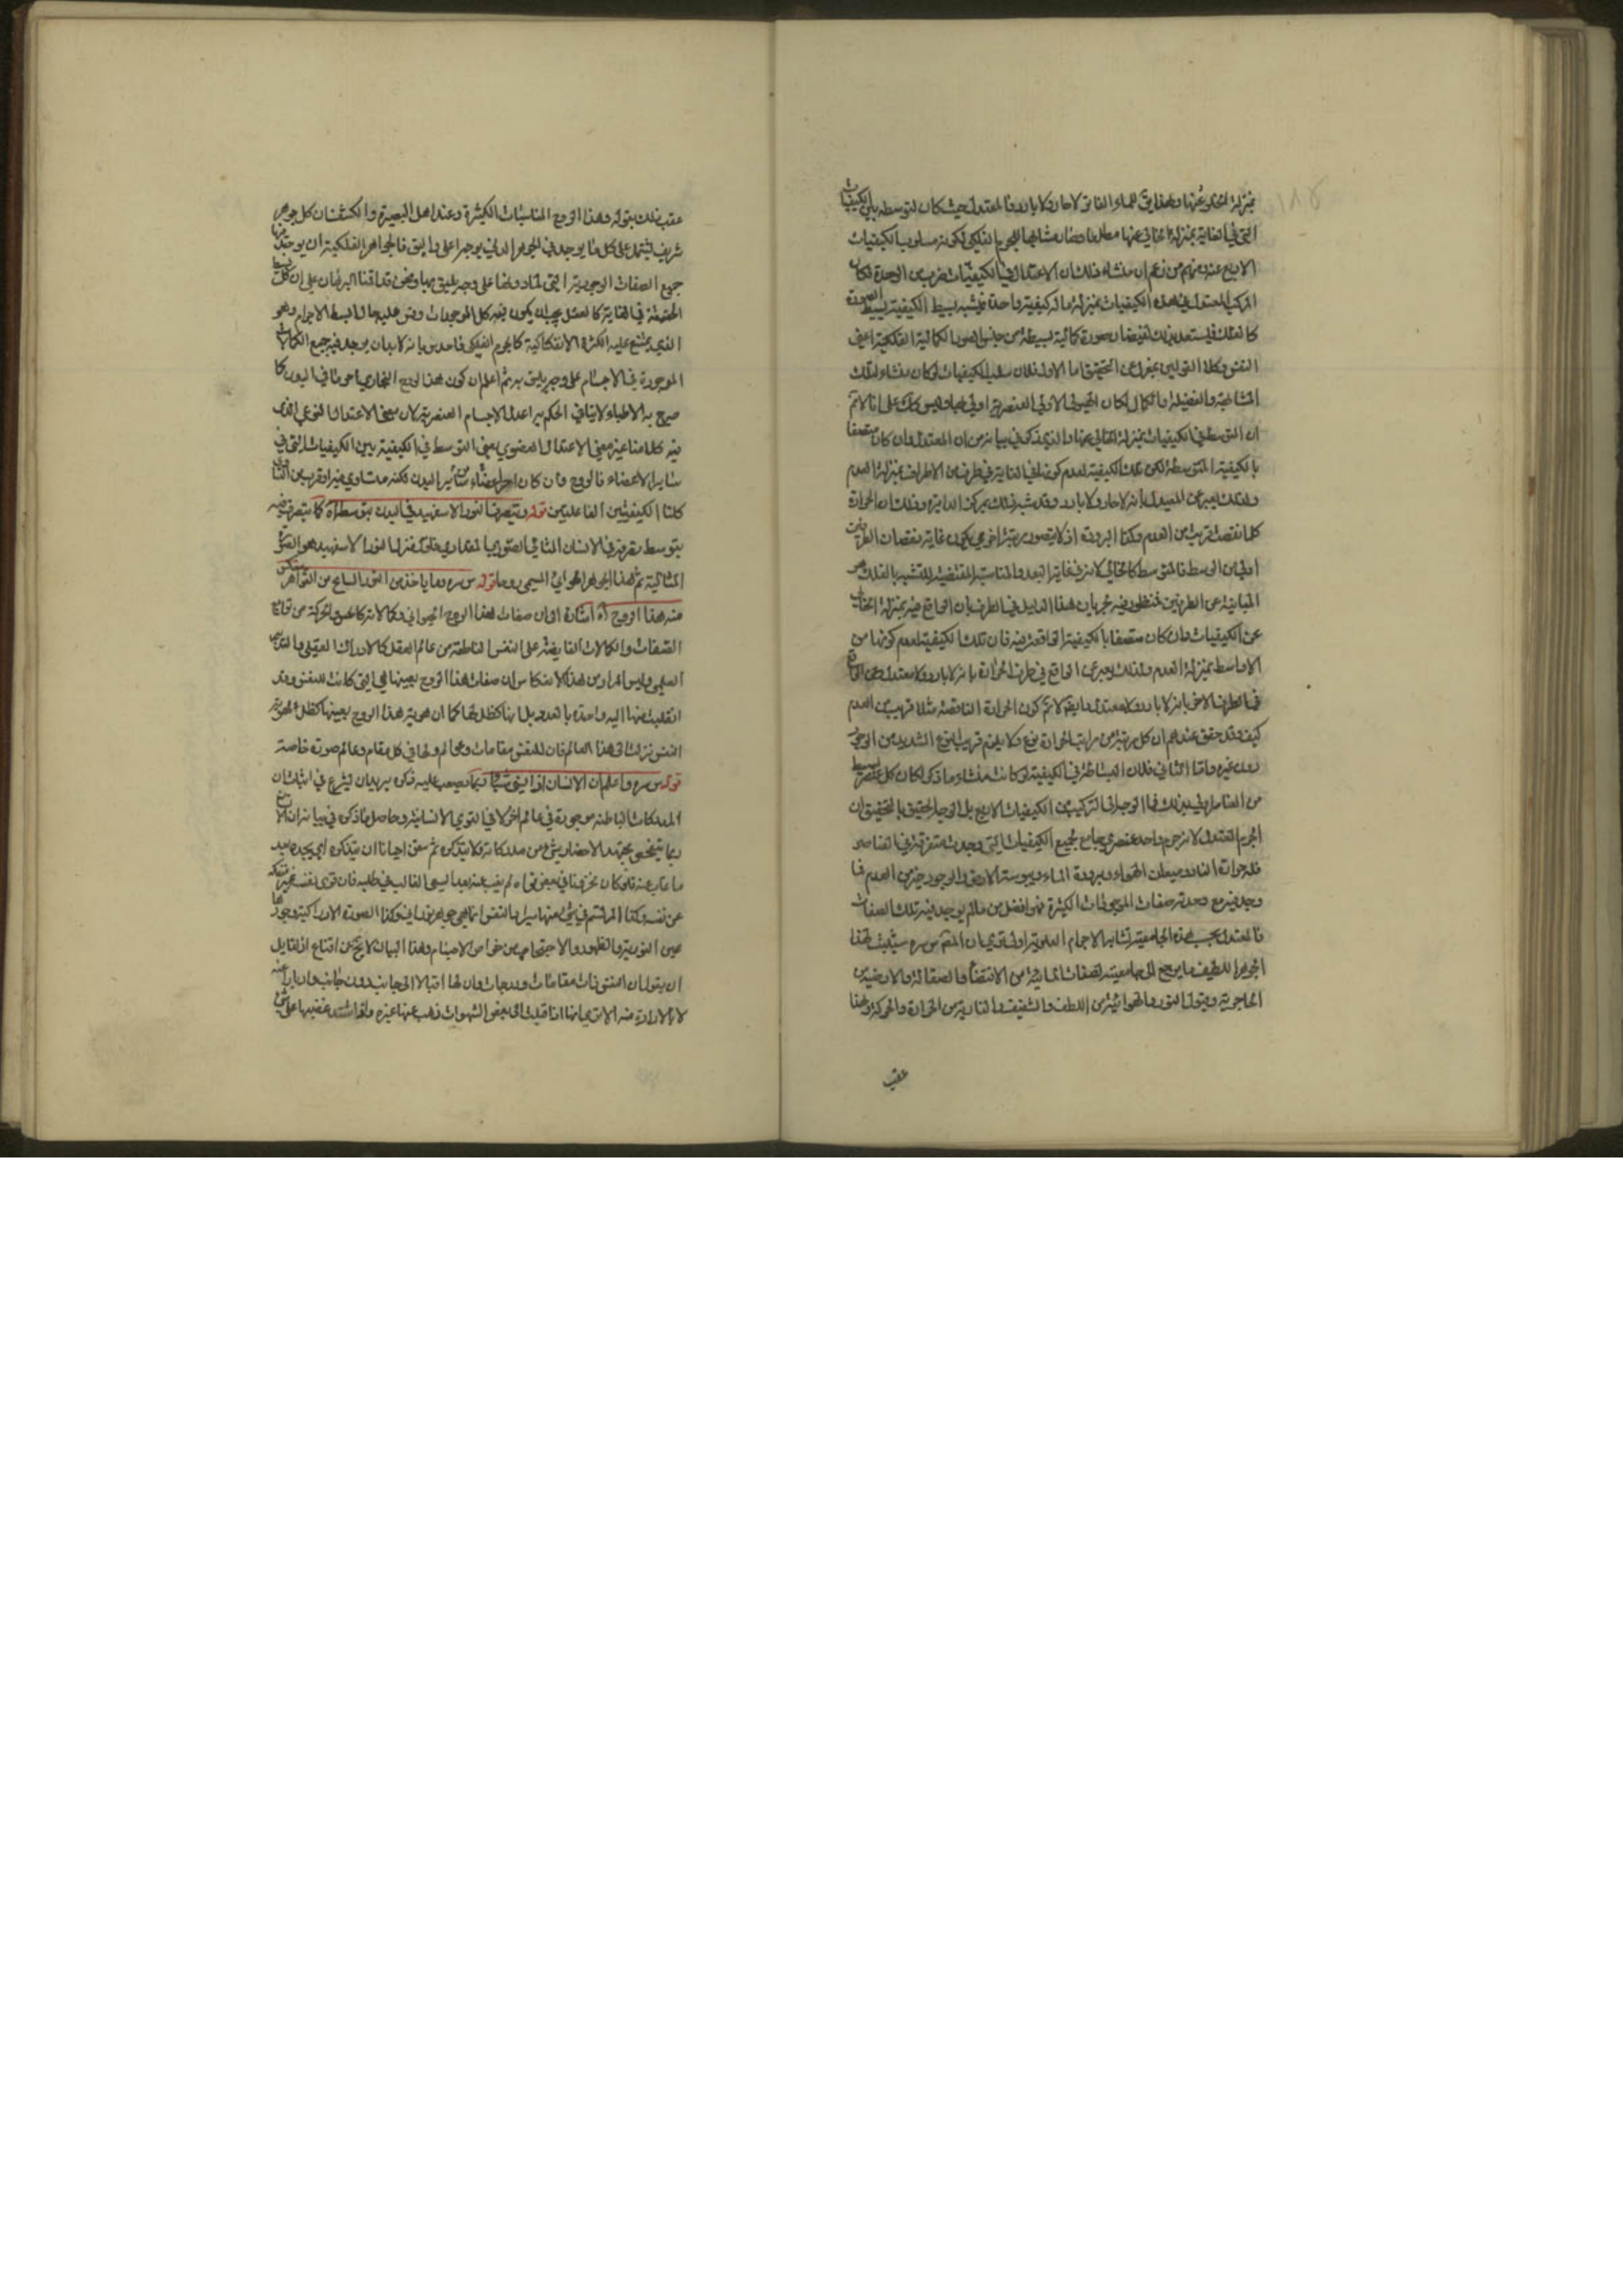 بمنزلة الخلو عنها وهذا يق للماء الفاتر لا حار ولا بارد فالمعتدل حيث كان لتوسطه بين الكيفيات
التي في الغاية بمنزلة الخالي عنها مطلقا صار مشابها للجرم الفلكي لكونه مسلوب الكيفيات
الاربع عنه ومنهم من زعم ان منشاء ذلك ان الاعتدال في الكيفيات ضرب من الوحدة لكان
المركب المعتدل في هذه الكيفيات بمنزلة ماله كيفية واحدة فيشبه بسيط الكيفية بسيط الصورة
كالفلك فيستعد بذلك لفيضان صورة كمالية بسيطة من جنس الصور الكمالية الفلكية اعني
النفس وكلا القولين بمعزل عن التحقيق اما الاول فلان سلب الكيفيات لو كان منشاء لتلك
المشابهة والفضيلة والكمال لكان الهيولى الاولى العنصرية اولى بها وليس كذلك على انا لا نم
ان المتوسط في الكيفيات بمنزلة الخالي عنها والذي ذكر في بيانه من ان المعتدل وان كان متصفا
بالكيفية المتوسطة لكن تلك الكيفية لعدم كونها في الغاية في طرف من الاطراف بمنزلة العدم
ولذلك يعبر عن المعتدل بانه لا حار ولا بارد وقد شبه ذلك بمركز الدايرة وذلك ان الحرارة
كلما نقصت قربت من العدم وكذا البرودة اذ لا يتصور مرتبة اخرى يكون غاية نقصان الطرفين
اولى من الوسط فالمتوسط كالخالي لانه في غاية البعد والمناسبة المقتضية للتشبه بالفلك هو
المباينة عن الطرفين فمنظور فيه لجريان هذا الدليل في الطرف بان الواقع فيه بمنزلة الخالي
عن الكيفيات وان كان متصفا بالكيفية الواقعة فيه فان تلك الكيفية لعدم كونها من
الاواسط بمنزلة العدم ولذلك يعبر عن الواقع في طرف الحرارة بانه لا بارد ولا معتدل وعن الواقع
في الطرف الاخر بانه لا بارد ولا معتدل وايضا لا نم كون الحرارة الناقصة مثلا قريب من العدم
كيف وقد حقق عندهم ان كل مرتبة من مراتب الحرارة نوع ولا يلزم قرب النوع الشديد من الوجود
دون غيره واما الثاني فلان البساطة في الكيفية لو كانت منشاء ما ذكر لكان كل عنصر بسيط
من العناصر اولى بذلك فما الوجه في التركيب من الكيفيات الاربع بل الوجه الحقيق بالتحقيق ان
الجرم المعتدل لانه جرم واحد عنصري جامع لجميع الكيفيات التي وجدت متفرقة في العناصر
فله حرارة النار وميعان الهواء وبرودة الماء ويبوسة الارض والوجود خير من العدم فما
وجد فيه مع وحدته صفات الموجودات الكثيرة فهو افضل من ما لم يوجد فيه تلك الصفات
فالمعتدل بحسب هذه الجامعية تشابه الاجرام العلوية اولا ترى ان المص س سره سيثبت لهذا
الجوهر اللطيف ما يرجح الى جامعيته لصفات المائية من الاقتصاد والصقالة والارضية من
الحاجزية ويقول النور والهوائية من اللطف والشفيف والنارية من الحرارة والحركة ولهذا
عقب
عقب ذلك بقوله وهذا الروح المناسبات الكثيرة وعند اهل البصيرة والكشف ان كل جوهر
شريف يشتمل على كل ما يوجد في الجوهر الدني بوجه اعلى واليق فالجواهر الفلكية ان يوجد فيها
جميع الصفات الوجودية التي لما دونها على وجه يليق بها ونحن قد اقمنا البرهان على ان كل بسيط
الحقيقة في الغاية كالعقل يجب ان يكون فيه كل الموجودات وقس عليه حال ابسط الاجرام وهو
الذي يمتنع عليه الكثرة الانفكاكية كالجرم الفلكي فاحدس بانه لا بد ان يوجد فيه جميع الكمالات
الموجودة في الاجسام على وجه يليق به ثم اعلم ان كون هذا الروح البخاري احر ما في البدن كما
صرح به الاطباء لا ينافي الحكم بانه اعدل الاجسام العنصرية لان معنى الاعتدال النوعي الذي
فيه كلامنا غير معنى الاعتدال العضوي يعني التوسط في الكيفية بين الكيفيات التي في
سائر الاعضاء فالروح وان كان احر اعضاء سائر البدن لكنه متساوي فيه او قريب من التساوي
كلتا الكيفيتين الفاعلتين قوله ويتصرف النور الاسفهبد في البدن بتوسطه اه كما يتصرف فيه
بتوسط تصرفه في الانسان المثالي الصوري المقداري فاول منزل النور الاسفهبد هو الصورة
المثالية ثم هذا الجوهر الهوائي المسمى روحا قوله س سره وما ياخذ من النور السانح من القواهر ينعكس
منه هذا الروح اه اشارة الى ان صفات هذا الروح الحيواني وكمالاته كالحس والحركة من توابع
الصفات والكمالات الفايضة على النفس الناطقة من عالم العقل كالادراك العقلي والتحريك
العلمي وليس المراد من هذا الانعكاس ان صفات هذا الروح بعينها هي التي كانت للنفس وقد
انقلبت عنها اليه واحدة بالعدد بل انها كظل لها كما ان هوية هذا الروح بعينها كظل لهوية
النفس نزلت الى هذا العالم فان للنفس مقامات وعوالم ولها في كل مقام وعالم صورة خاصة
قوله س سره واعلم ان الانسان اذا نسي شيئا ربما يصعب عليه ذكره يريد ان يشرع في اثبات ان
المدركات الباطنة موجودة في عالم اخر لا في القوى الانسانية وحاصل ما ذكره في بيانه ان الانسان
ربما شخص يجتهد لاحضار شيء من مدركاته ولا يتذكره ثم يتفق احيانا ان يتذكره اي يجده بعد
ما غاب عنه فلو كان مخزونا في بعض قواه لم يغب عنه بعد السعي الغالب في طلبه فان قوى نفسه غير منفكة
عن نفسه وكذا المرتسم في شيء منها سيما والنفس انما هي جوهر نوراني وكذا الصورة الادراكية وجودها
عين النورية والظهور والاحتجاب من خواص الاجسام وهذا البيان لا يخ عن اقناع اذ لقايل
ان يقول ان النفس ذات مقامات ودرجات وان لها اقبالا الى جانب دون جانب وادبارا عنه